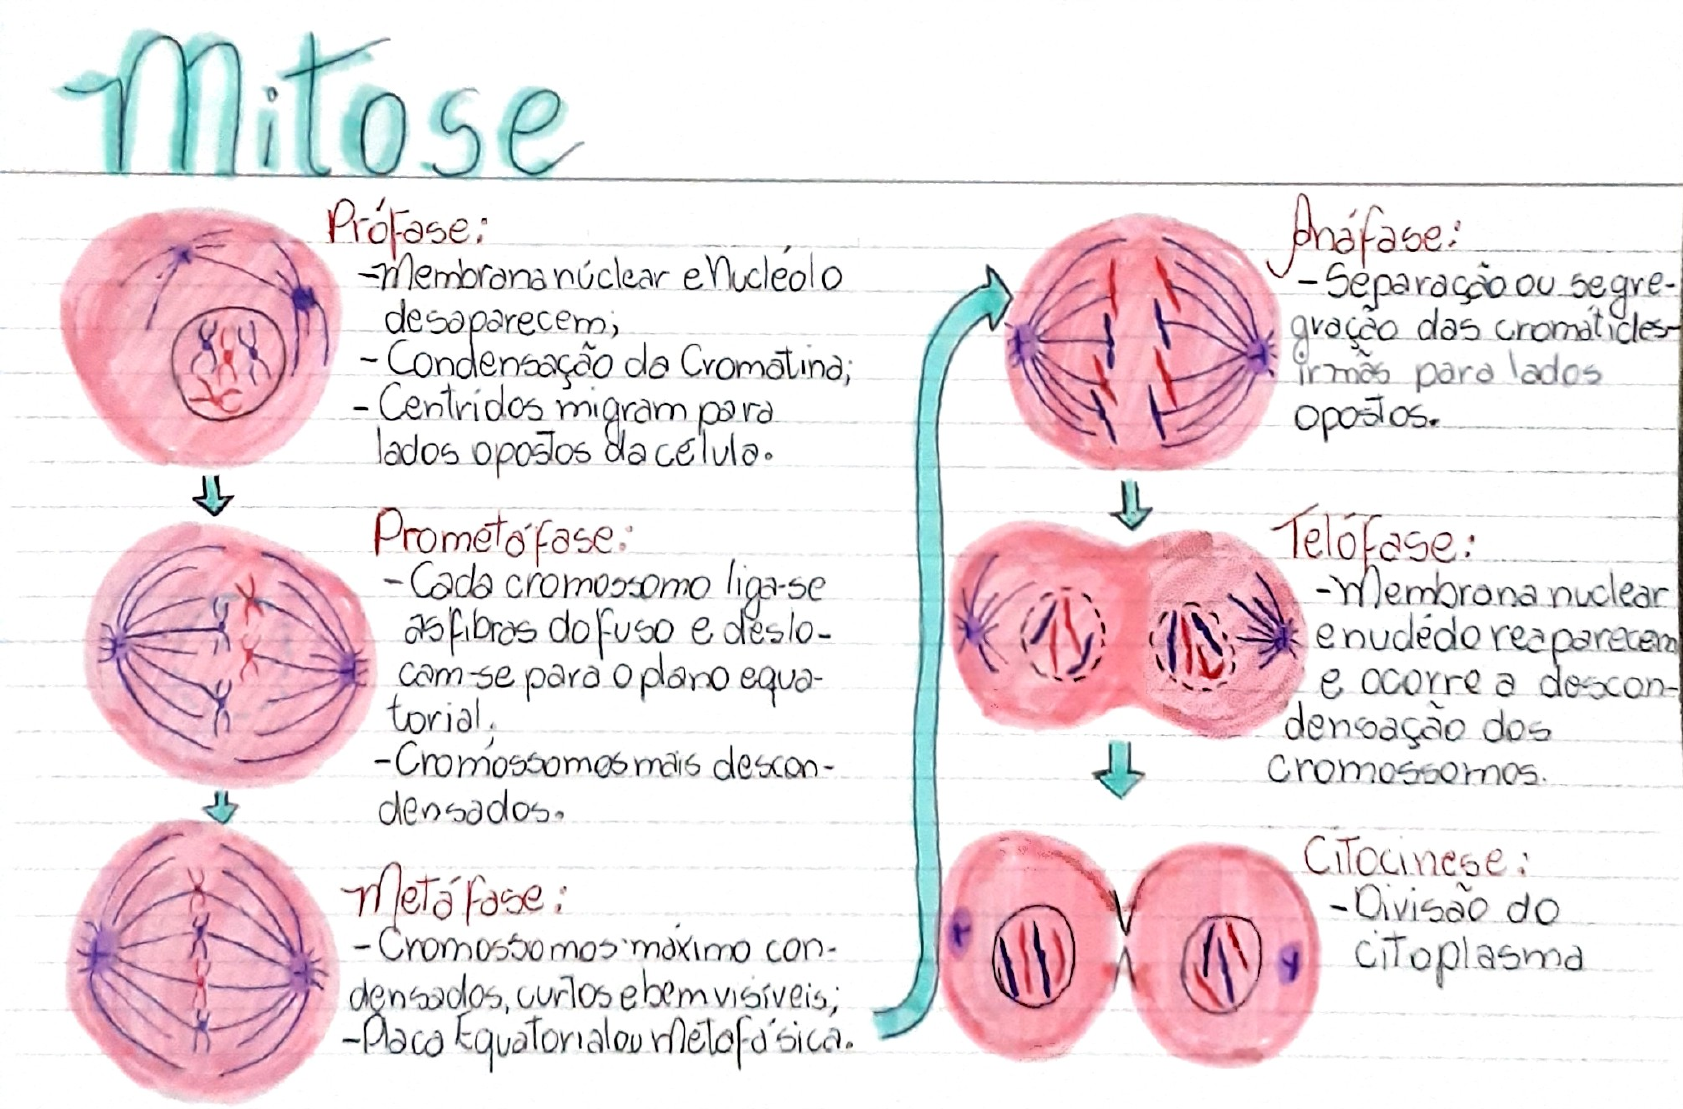 Mitose
Prófase:
-Membrana núclear e Nucléolo
desaparecem;
- Condensação da Cromatina;
- Centríolos migram para
lados opostos da célula.
Prometáfase:
-Cada cromossomo liga-se
às fibras do fuso e deslo-
cam-se para o plano equa-
torial;
-Cromóssomos mais descon-
densados.
Metáfase:
- Cromossomos máximo con-
densados, curtos e bem visíveis;
-Placa Equatorial ou Metafásica.
Anáfase:
- Separação ou segre-
gração das cromátides-
irmãs para lados
opostos.
Telófase:
-Membrana nuclear
e nucléolo reaparecem
e ocorre a descon-
densação dos
cromossomos.
Citocinese:
-Divisão do
citoplasma